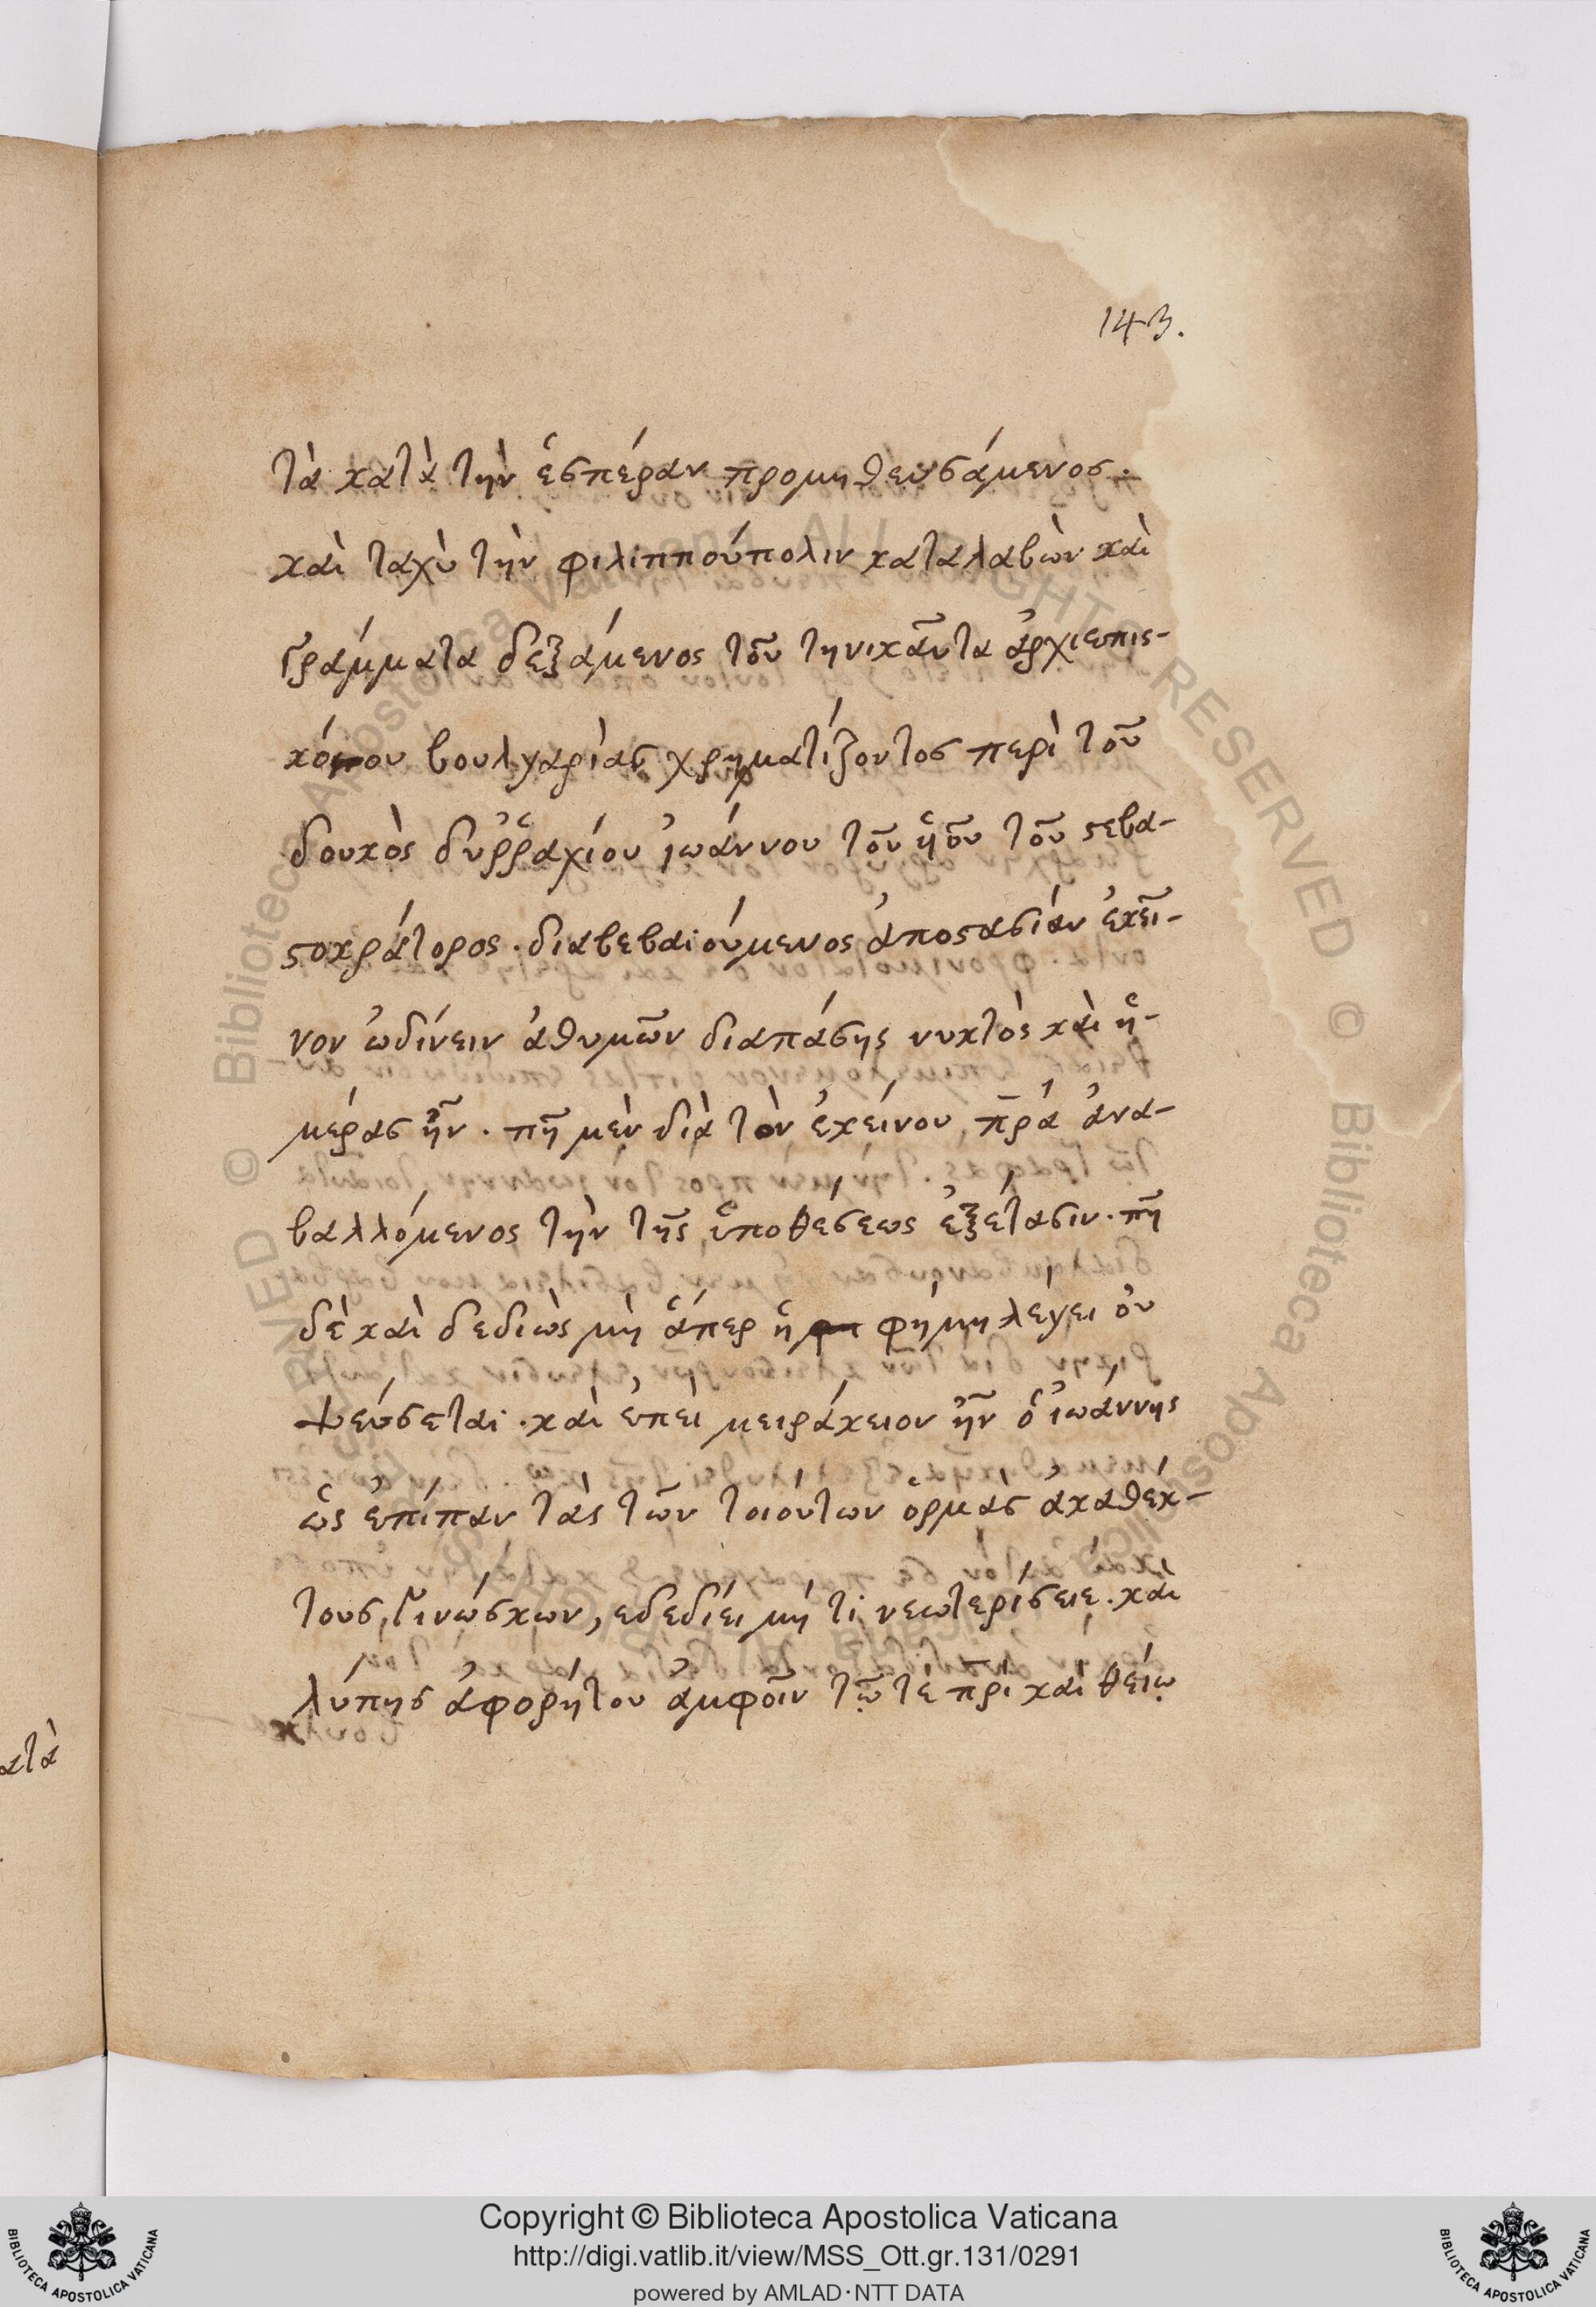 143.
τὰ κατὰ τὴν ἑσπέραν προμηθευσάμενος.
καὶ ταχὺ τὴν φιλιππούπολιν καταλαβὼν καὶ
γράμματα δεξάμενος τοῦ τηνικαῦτα ἀρχιεπισ-
κόπου βουλγαρίας χρηματίζοντος περὶ τοῦ
δουκὸς δυῤῥαχίου ἰωάννου τοῦ ὑιοῦ τοῦ σεβα-
στοκράτορος. διαβεβαιούμενος ἀποστασίαν ἐκεῖ-
νον ὠδίνειν ἀθυμῶν διαπάσης νυκτὸς καὶ ἡ-
μέρας ἦν. πῆ μὲν διὰ τὸν ἐκείνου πρα ἀνα-
βαλλόμενος τὴν τῆς ὑποθέσεως ἐξέτασιν. πῆ
δὲ καὶ δεδιὼς μὴ ἅπερ ἡ φήμη λέγει οὐ
ψεύσεται. καὶ ἐπεὶ μειράκειον ἦν ὁ ἰωάννης
ὡς ἐπίπαν τὰς τῶν τοιούτων ὁρμὰς ἀκαθέκ-
τους γινώσκων, εδεδίει μή τι νεωτερίσειε. καὶ
λύπης ἀφορήτου ἀμφοῖν τῶ τὲ πρι καὶ θείω
ατὰ
Copyright © Biblioteca Apostolica Vaticana
http://digi.vatlib.it/view/MSS_Ott.gr.131/0291
powered by AMLAD·NTT DATA
BIBLIOTECA APOSTOLICA VATICANA
BIBLIOTECA APOSTOLICA VATICANA